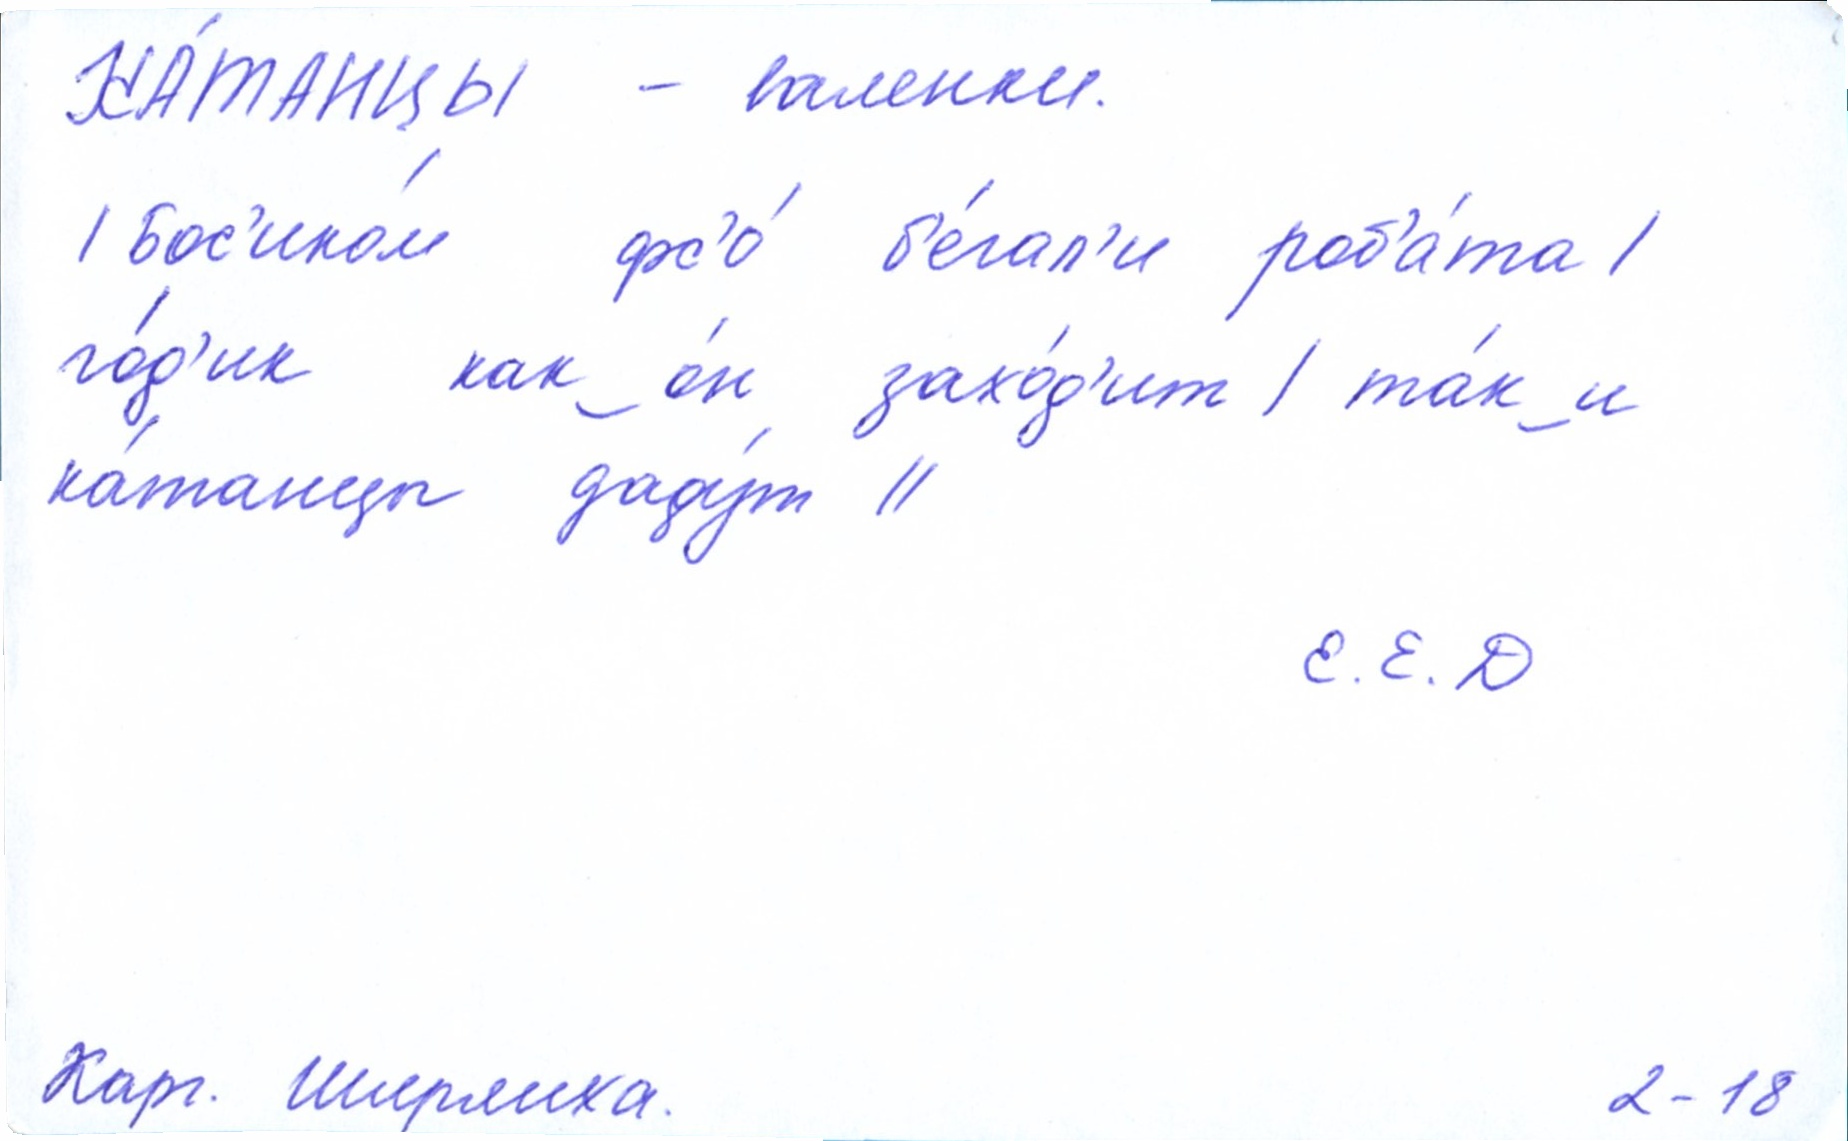 КА́ТАНЦЫ – валенки.
| Бос'ико́м фс'о́ б'е́гал'и роб'а́та |
го́д'ик как‿о́н захо́д'ит | та́к‿и
ка́танцы даду́т ||
Е. Е. Д
Карг. Ширяиха.
2-18